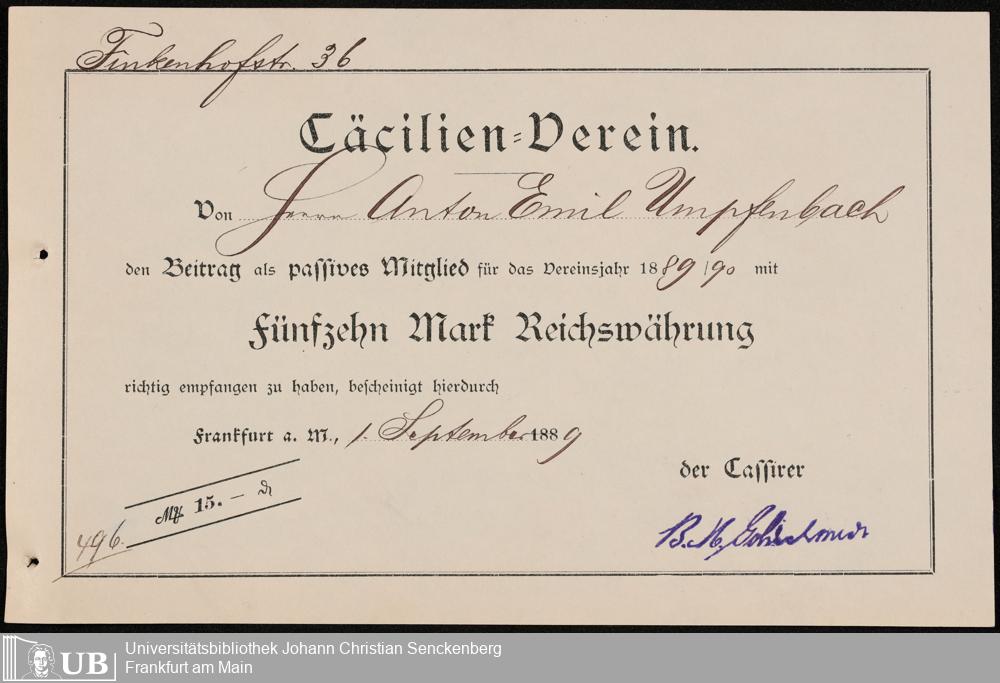 Finkenhofstr. 36
Cäcilien-Verein.
Von Herrn Anton Emil Umpfenbach
den Beitrag als passives Mitglied für das Vereinsjahr 1889/90 mit
Fünfzehn Mark Reichswährung
richtig empfangen zu haben, bescheinigt hierdurch
Frankfurt a. M., 1. September 1889
der Cassirer
Mk 15.—
B. M. Goldschmidt
496.
UB
Universitätsbibliothek Johann Christian Senckenberg
Frankfurt am Main